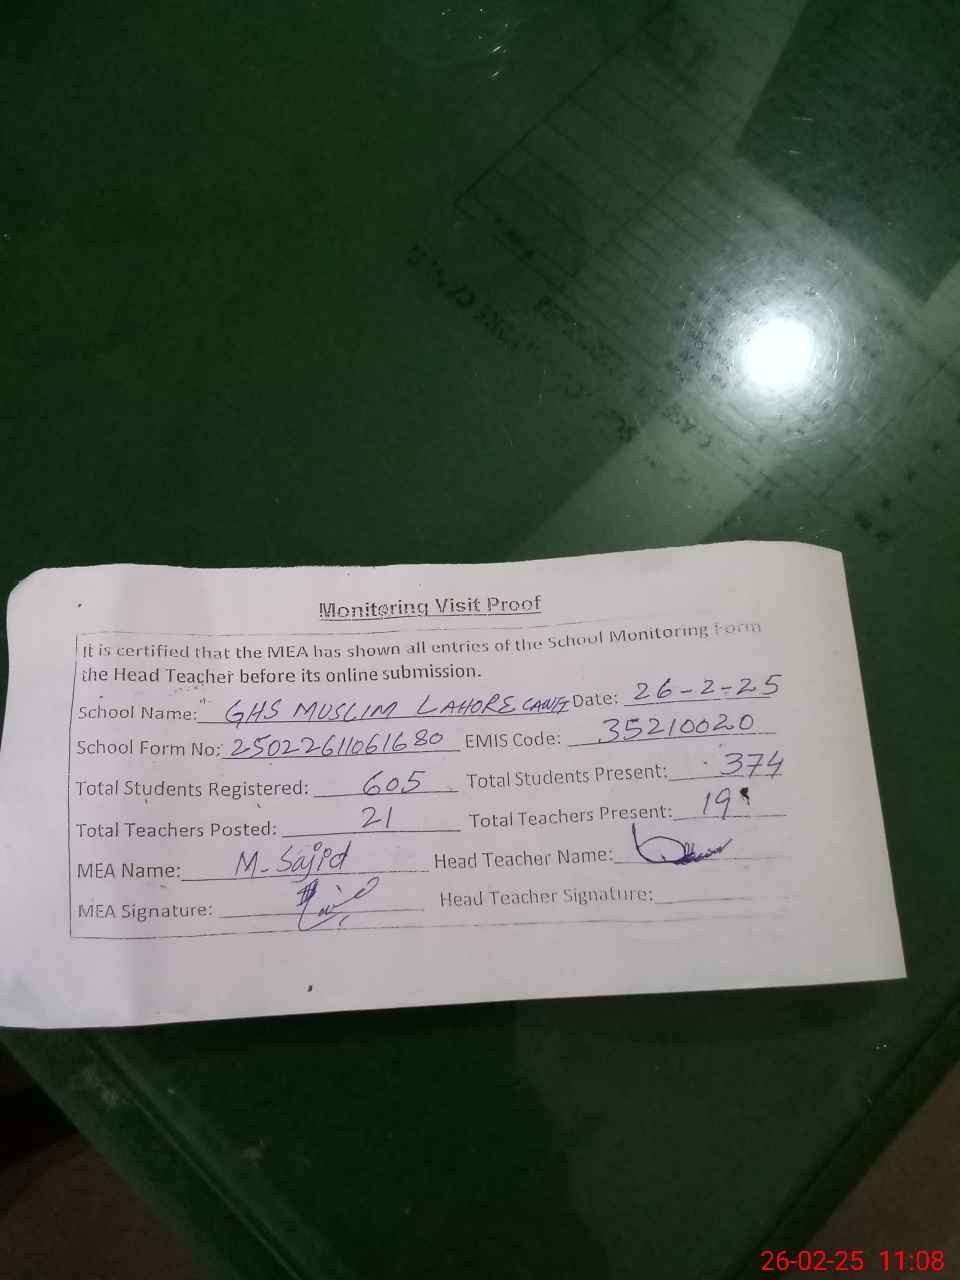 Monitoring Visit Proof
It is certified that the MEA has shown all entries of the School Monitoring Form
the Head Teacher before its online submission.
School Name: GHS MUSLIM LAHORE CANTT Date: 26-2-25
School Form No: 25022611061680 EMIS Code: 35210020
Total Students Registered: 605 Total Students Present: 374
Total Teachers Posted: 21 Total Teachers Present: 19
MEA Name: M. Sajid Head Teacher Name:
MEA Signature: Head Teacher Signature:
26-02-25 11:08